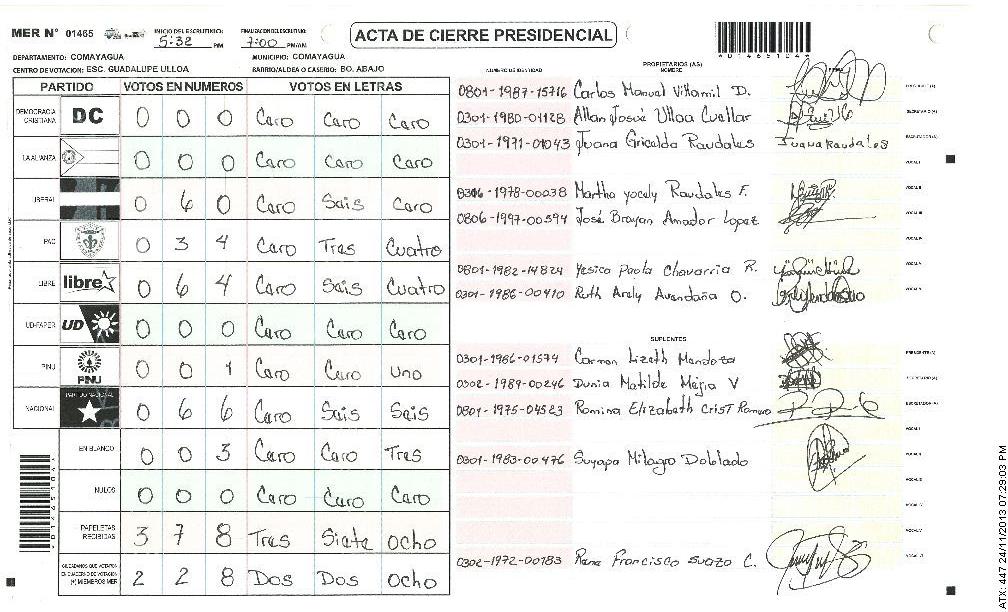 MER N° 01465
INICIO DEL ESCRUTINIO:
5:32 PM
FINALIZACION ESCRUTINIO:
7:00 PM/AM
ACTA DE CIERRE PRESIDENCIAL
DEPARTAMENTO: COMAYAGUA
MUNICIPIO: COMAYAGUA
CENTRO DE VOTACION: ESC. GUADALUPE ULLOA
BARRIO/ALDEA O CASERIO: BO. ABAJO
NUMERO DE IDENTIDAD
PROPIETARIOS (AS)
NOMBRE
PARTIDO VOTOS EN NUMEROS VOTOS EN LETRAS
DEMOCRACIA CRISTIANA DC 0 0 0 Caro Caro Caro
LA ALIANZA 0 0 0 Caro Caro Caro
LIBERAL 0 6 0 Caro Sais Caro
PAC 0 3 4 Caro Tras Cuatro
LIBRE libre 0 6 4 Caro Sais Cuatro
UD-FAPER UD 0 0 0 Caro Caro Caro
PINU PINU 0 0 1 Caro Caro uno
NACIONAL PARTIDO NACIONAL 0 6 6 Caro Sais Sais
EN BLANCO 0 0 3 Caro Caro Tras
NULOS 0 0 0 Caro Caro Caro
PAPELETAS RECIBIDAS 3 7 8 Tras Siata ocho
CIUDADANOS QUE VOTARON EN CUADERNO DE VOTACION (+) MIEMBROS MER 2 2 8 Dos Dos ocho
0801-1987-15716 Carlos Manual Villamil D.
0301-1980-01128 Allan Josué Ulloa Cuellar
0301-1971-01043 Juana Gricalda Raudales Juana Raudales
0306-1978-00038 Martha yocaly Raudales F.
0806-1997-00394 José Brayan Amador Lopez
0801-1982-14824 Yesica Paola Chavarria R.
0301-1986-00410 Ruth Araly Avandaña O.
SUPLENTES
0301-1986-01574 Carman Lizath Mandoza
0302-1989-00246 Dunia Matilda Majia V
0801-1975-04523 Romina Elizabath Crist Romero
0301-1983-00476 Suyapa Milagro Doblado
0302-1972-00783 Rana Francisco Suazo C.
ATX: 447 24/11/2013 07:29:03 PM